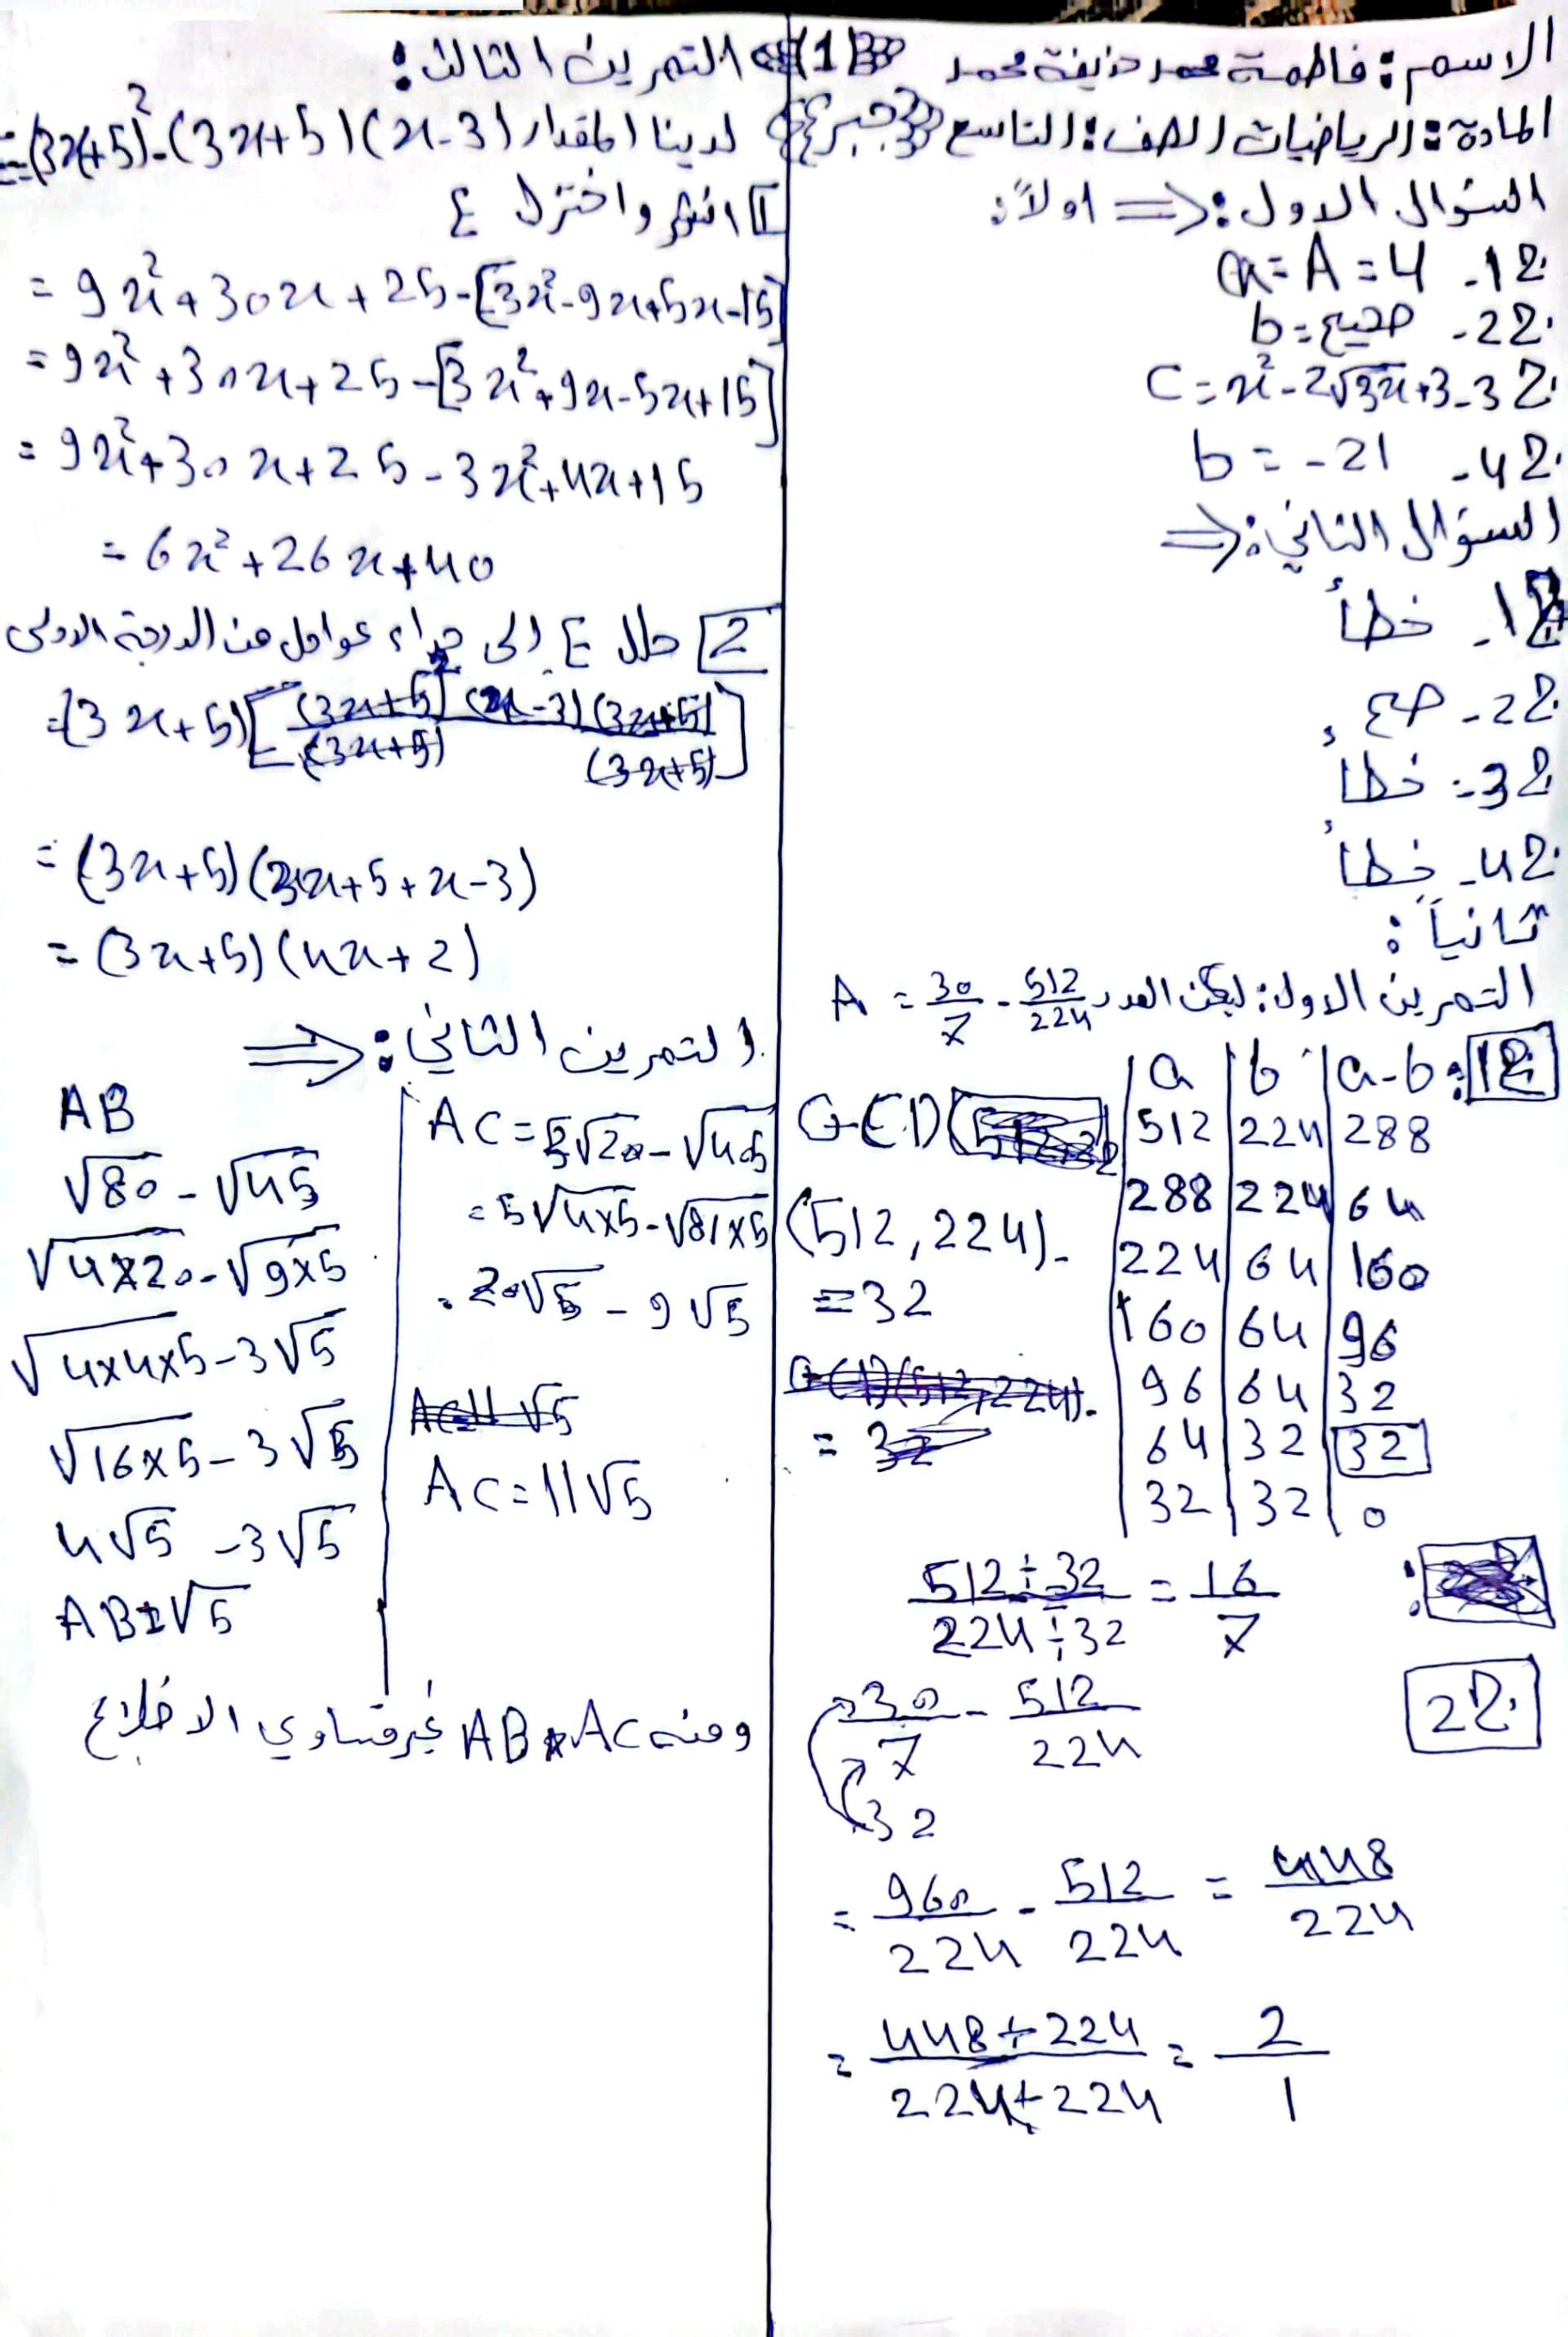 الاسم: فاطمة محمد حذيفة محمد (1)
المادة: الرياضيات الصف: التاسع جبر
السؤال الاول: ⇐ اولاً:
1- a = A = 4
2- b = صحيح
3- C = x² - 2√3x + 3
4- b = -21
السؤال الثاني: ⇐
1- خطأ
2- صح
3- خطأ
4- خطأ
ثانياً:
التمرين الاول: ليكن العدد A = 30/7 - 512/224
1: a | b | a-b
GCD 512 | 224 | 288
(512, 224) 288 | 224 | 64
= 32 224 | 64 | 160
160 | 64 | 96
96 | 64 | 32
64 | 32 | 32
32 | 32 | 0
512÷32 / 224÷32 = 16/7
2 30/7 - 512/224
32
= 960/224 - 512/224 = 448/224
= 448÷224 / 224÷224 = 2/1
التمرين الثالث:
لدينا المقدار E = (3x+5)² - (3x+5)(x-3)
1 انشر واختزل E
= 9x² + 30x + 25 - [3x² - 9x + 5x - 15]
= 9x² + 30x + 25 - [3x² + 9x - 5x + 15]
= 9x² + 30x + 25 - 3x² + 4x + 15
= 6x² + 26x + 40
2 حلل E إلى جداء عوامل من الدرجة الاولى
= (3x+5)[(3x+5)²/(3x+5) (x-3)(3x+5)/(3x+5)]
= (3x+5)(3x+5+x-3)
= (3x+5)(4x+2)
التمرين الثاني: ⇐
AB
√80 - √45
√4×20 - √9×5
√4×4×5 - 3√5
√16×5 - 3√5
4√5 - 3√5
AB = √5
AC = 5√20 - √405
= 5√4×5 - √81×5
= 20√5 - 9√5
AC = 11√5
ومنه AB ≠ AC غير متساوي الاضلاع